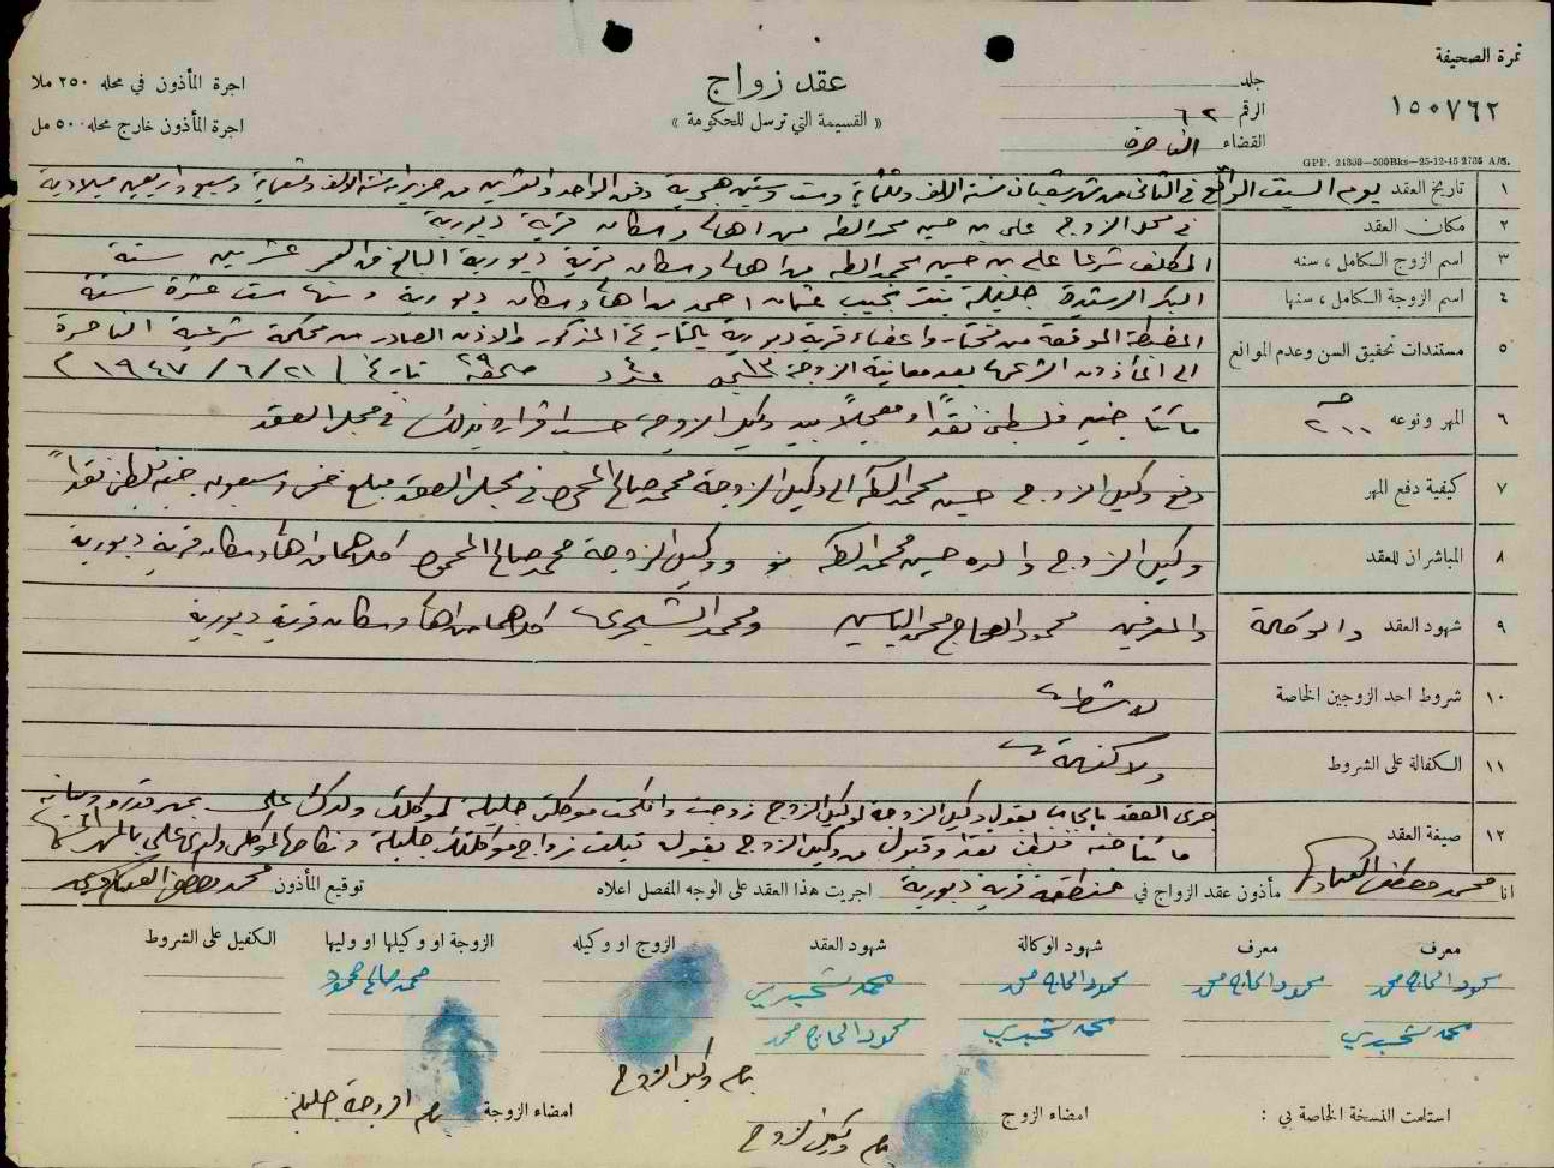 نمرة الصحيفة
١٥٥٧٦٢
جلد
الرقم ٦٢
القضاء الناصرة
عقد زواج
« القسيمة التي ترسل للحكومة »
اجرة المأذون في محله ٢٥٠ ملا
اجرة المأذون خارج محله ٥٠٠ مل
GPP. 24300—500Bks—25-12-45 2735 A/S.
١ تاريخ العقد يوم السبت الواقع في الثاني من شهر شعبان سنة الالف وثلثماية وست وستين هجرية وفي الواحد والعشرين من حزيران سنة الالف وتسعماية وسبع واربعين ميلادية
٢ مكان العقد في محل الزوج علي بن حسين محمد الطه من اهالي وسكان قرية دبورية
٣ اسم الزوج الكامل ، سنه المكلف شرعا علي بن حسين محمد الطه من اهالي وسكان قرية دبورية البالغ من العمر عشرين سنة
٤ اسم الزوجة الكامل ، سنها البكر الرشيدة جليلة بنت نجيب عثمان احمد من اهالي وسكان دبورية وسنها ست عشرة سنة
٥ مستندات تحقيق السن وعدم الموانع المضبطة الموقعة من مختار واعضاء قرية دبورية بالتاريخ المذكور والاذن الصادر من محكمة شرعية الناصرة
الى المأذون الشرعي بعد معاينة الزوجة ١٣ عدد صحيفة ٢٩ تاريخ ٢١/٦/١٩٤٧ م
٦ المهر ونوعه ٢٠٠ مائتا جنيه فلسطيني نقداً ومعجلاً بيد وكيل الزوجة حسب اقراره بذلك في مجلس العقد
٧ كيفية دفع المهر دفع وكيل الزوج حسين محمد الطه الى وكيل الزوجة محمد صالح المحمود في مجلس العقد مبلغ خمس وسبعون جنيه فلسطيني نقداً
٨ المباشران للعقد وكيل الزوج والده حسين محمد الطه ووكيل الزوجة محمد صالح المحمود كلاهما من اهالي وسكان قرية دبورية
٩ شهود العقد والوكالة والمعرفين محمود الحاج محمد الياسين ومحمد الشحبري كلاهما من اهالي وسكان قرية دبورية
١٠ شروط احد الزوجين الخاصة لا شرط
١١ الكفالة على الشروط ولا كفالة
١٢ صيغة العقد جرى العقد بايجاب بقول وكيل الزوجة لوكيل الزوج زوجت وانكحت موكلتي جليلة لموكلك ولدك علي بمهر قدره
مائتا جنيه فلسطيني نقدا وقبول من وكيل الزوج بقوله قبلت زواج موكلتك جليلة ونكاحها لموكلي ولدي علي بالمهر
انا محمد مصطفى مأذون عقد الزواج في منطقة قرية دبورية اجريت هذا العقد على الوجه المفصل اعلاه توقيع المأذون محمد مصطفى
معرف معرف شهود الوكالة شهود العقد الزوج او وكيله الزوجة او وكيلها او وليها الكفيل على الشروط
محمود الحاج محمد محمود الحاج محمد محمود الحاج محمد محمد شحبري محمد صالح محمود
محمد شحبري محمد شحبري محمود الحاج محمد
بصم وكيل الزوج
استلمت النسخة الخاصة بي : امضاء الزوج بصم وكيل الزوج امضاء الزوجة بصم الزوجة جليلة